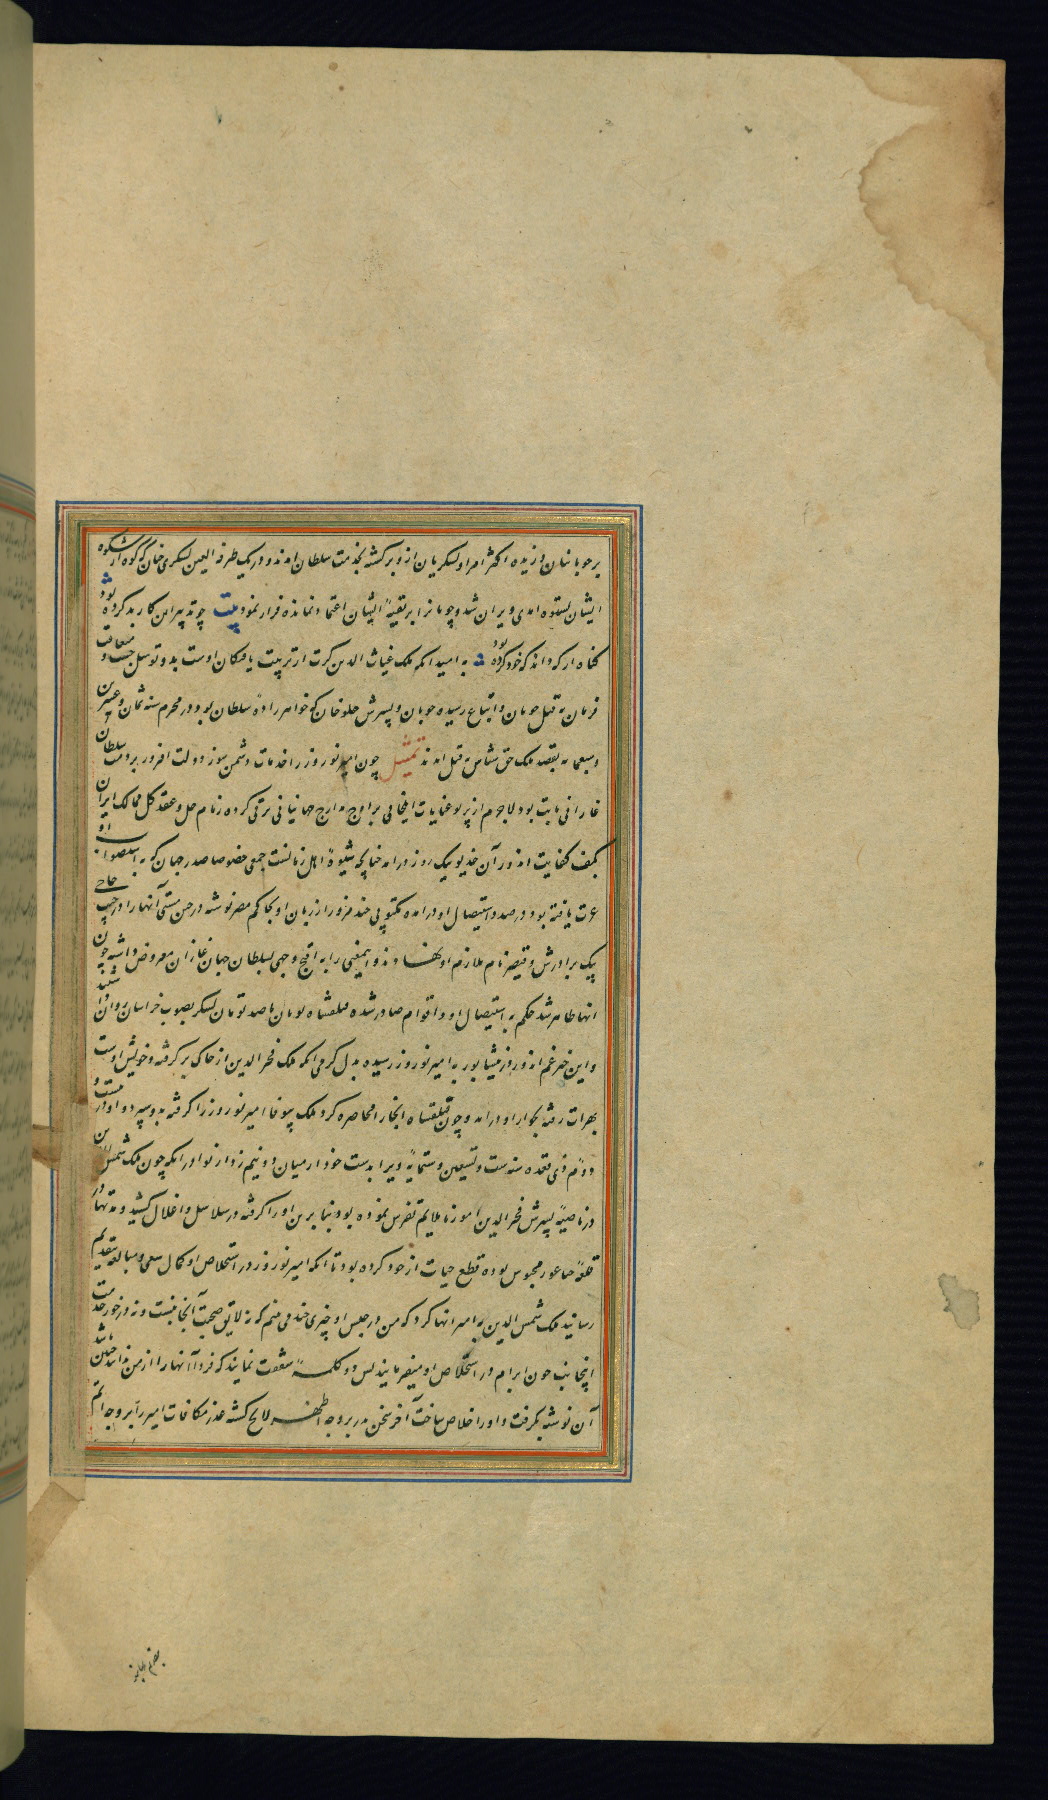 بر جوبانیان وزیده اکثر امرا و لشکریان ازو برگشته بخدمت سلطان امدند و در یک طرفة العین لشکری خان که کوه از شکوه
ایشان بستوه امدی ویران شد و چوبانرا بر بقیهٔ ایشان اعتماد نمانده فرار نمود بیت چو تدبیر این کار بد کرده بود
گناه از که داند که خود کرده بود به امید انکه ملک غیاث الدین کرت از تربیت یافتکان اوست بدو توسل جست و متعاقب
فرمان به قتل جوبان و اتباع رسیده جوبان و پسرش جلو خان که خواهر زادهٔ سلطان بود در محرم سنه ثمان و عشرین
و سبعمایه بقصد ملک حق نشناس به قتل امدند تمثیل چون امیر نوروز را خدمات دشمن سوز و دولت افروز بر ذمت سلطان
غازانی ثابت بود لاجرم از پرتو عنایات ایلخانی بر اوج مدارج جهانبانی ترقی کرده زمام حل و عقد کل ممالک ایران
بکف کفایت او در آن خدیو نیک روز درامد چنانچه شیوهٔ اهل زمانست جمعی خصوصا صدر جهان که به استصواب او
عزت یافته بود در صدد استیصال او درامده مکتوبی چند مزور از زبان او بحاکم مصر نوشته در حین مستی آنها را در جیب حاجی
بیک برادرش و قیصر نام ملازم او نهادند و اینمعنی را به اقبح وجهی بسلطان جهان غازان معروض داشته چون
انها ظاهر شد حکم به استیصال او و اقوام صادر شده قتلغشاه نویان با صد تومان لشکر بصوب خراسان روان شدند
و این خبر غم اندوز در نیشابور به امیر نوروز رسیده بدل کرمی انکه ملک فخر الدین از خاک بر کرفته و خویش اوست
بهرات رفته بجوار او درامد و چون قتلغشاه انجا را محاصره کرد ملک بیوفا امیر نوروز را گرفته بدو سپرد و او در بیست و
دوم ذی قعده سنه ست و تسعین و ستمایه ویرا بدست خود از میان دو نیم زد از نوادر انکه چون ملک شمس الدین
در ناصیهٔ پسرش فخر الدین امور ناملایم تفرس نموده بود بنابرین اورا گرفته در سلاسل و اغلال کشید و مدتها در
قلعهٔ خیسار محبوس بوده قطع حیات از خود کرده بود تا انکه امیر نوروز در استخلاص او کمال سعی و مبالغه بتقدیم
رسانید ملک شمس الدین به امیر انها کرد که من در جبین او چیزی چند می بینم که نه لایق صحبت آنجا نبست و نه در خور خدمت
اینجانب چون ابرام در استخلاص او میفرمایند بس دو کلمهٔ شفقت نمایند که فردا آنها را از من ندانند چنین باشد
آن نوشته بگرفت و اورا خلاص ساخت آخر سخن پدر بروجه اظهر لایح کشته عذر مکافات امیر را بروجه اتم